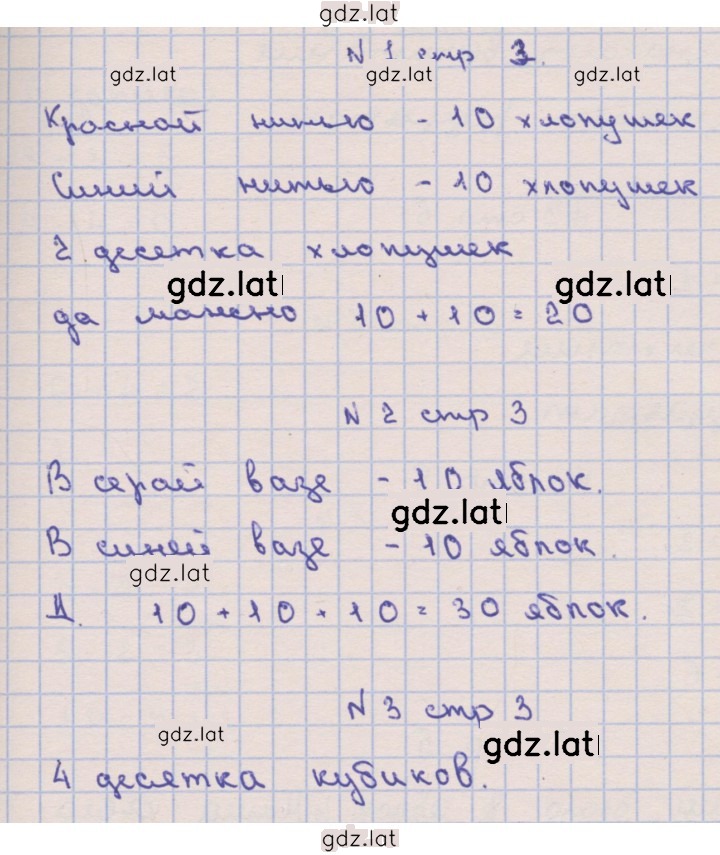 gdz.lat
N 1 стр 3.
gdz.lat gdz.lat gdz.lat
Красной нитью - 10 хлопушек
Синей нитью - 10 хлопушек
2 десятка хлопушек
gdz.lat gdz.lat
да можно 10 + 10 = 20
N 2 стр 3
В серой вазе - 10 яблок.
gdz.lat
В синей вазе - 10 яблок.
gdz.lat
Д. 10 + 10 + 10 = 30 яблок.
N 3 стр 3
gdz.lat gdz.lat
4 десятка кубиков.
gdz.lat